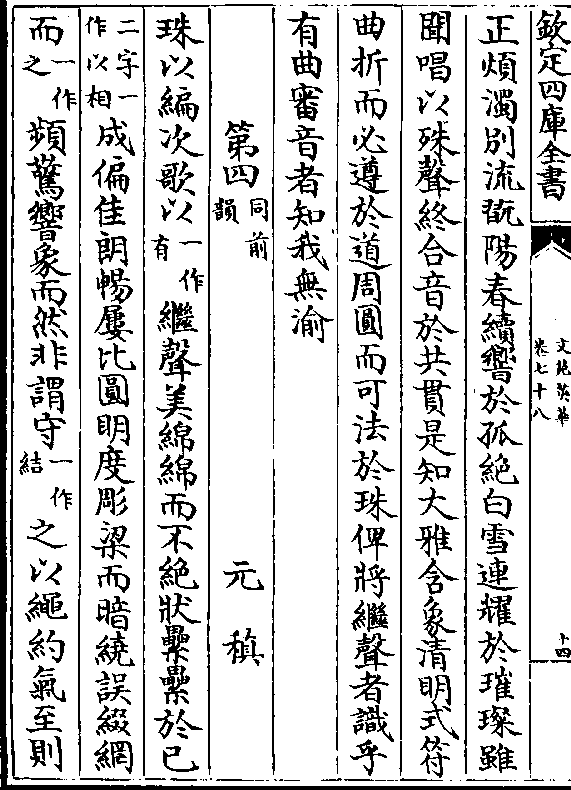 欽定四庫全書
文苑英華
卷七十八
十四
正煩濁別流翫陽春續響於孤絶白雪連耀於璀璨雖
聞唱以殊聲終合音於共貫是知大雅含象清明式符
曲折而必遵於道周圓而可法於珠俾將繼聲者識乎
有曲審音者知我無渝
第四同前韻 元稹
珠以編次歌以一作有繼聲美綿綿而不絶狀纍纍於已
二字一作以相成偏佳朗暢屢比圓明度彫梁而暗繞誤綴網
而一作之頻驚響象而然非謂守一作結之以繩約氣至則